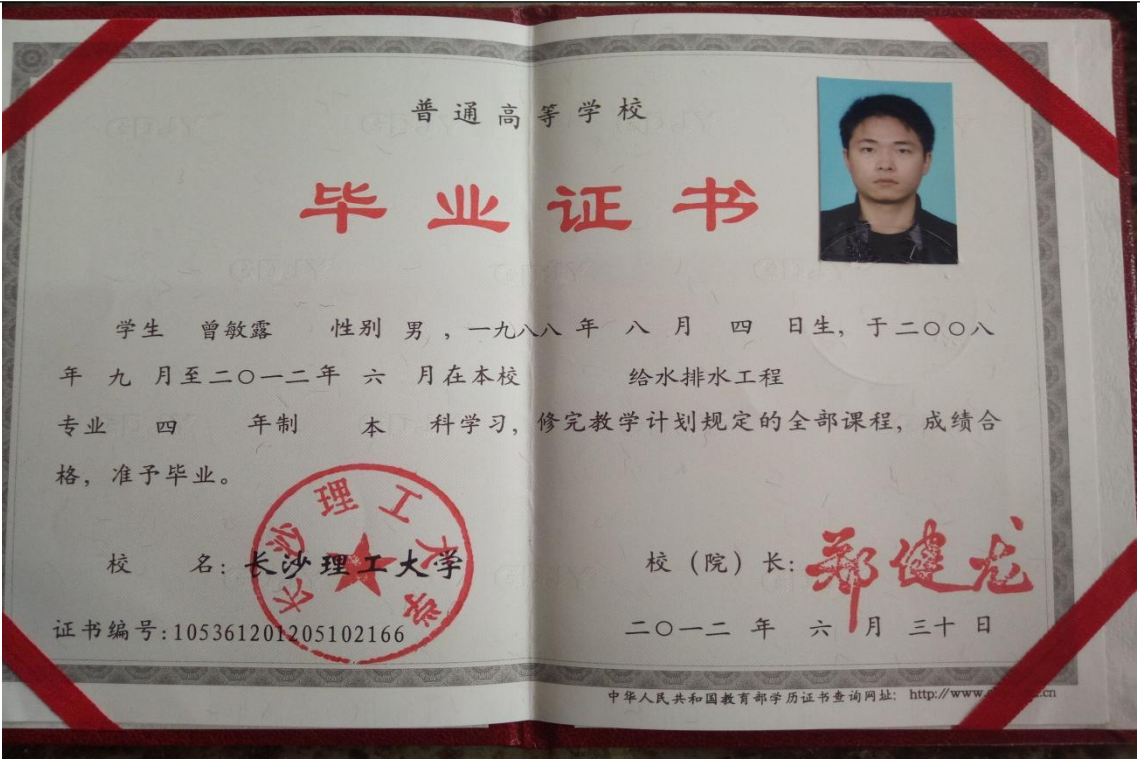 普通高等学校
毕业证书
学生 曾敏露 性别 男，一九八八 年 八 月 四 日生，于二〇〇八
年 九 月至二〇一二年 六 月在本校 给水排水工程
专业 四 年制 本 科学习，修完教学计划规定的全部课程，成绩合
格，准予毕业。
校 名：长沙理工大学
长沙理工大学
校（院）长：郑健龙
证书编号：105361201205102166
二〇一二 年 六 月 三十 日
中华人民共和国教育部学历证书查询网址： http://www.